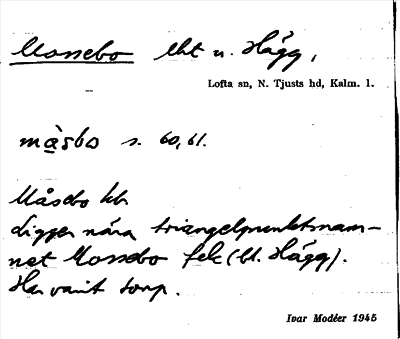 Mossebo lht u. Hägg,
Lofta sn, N. Tjusts hd, Kalm. l.
måsbo s. 60, 61.
Måsebo kbr
Ligger nära triangelpunktsnam-
net Mossebo fek (bl. Hägg).
Har varit torp.
Ivar Modéer 1945